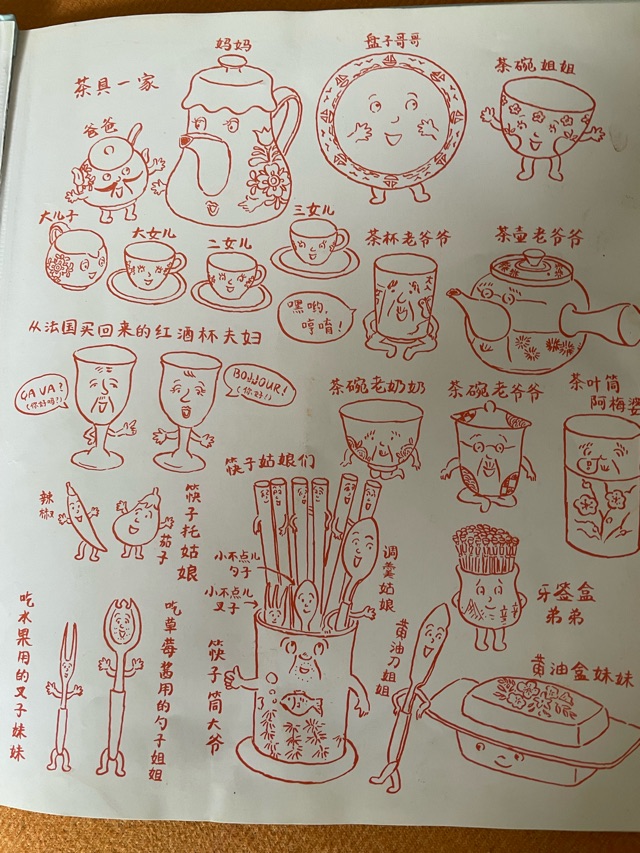 妈妈
盘子哥哥
茶碗姐姐
茶具一家
爸爸
大儿子
大女儿
二女儿
三女儿
茶杯老爷爷
茶壶老爷爷
嘿哟,
哼唷!
从法国买回来的红酒杯夫妇
ÇA VA?
(你好吗?)
BONJOUR!
(你好!)
茶碗老奶奶
茶碗老爷爷
茶叶筒
阿梅婆
辣椒
茄子
筷子托姑娘
筷子姑娘们
小不点儿
勺子
小不点儿
叉子
调羹姑娘
牙签盒
弟弟
吃水果用的叉子妹妹
吃草莓酱用的勺子姐姐
筷子筒大爷
黄油刀姐姐
黄油盒妹妹